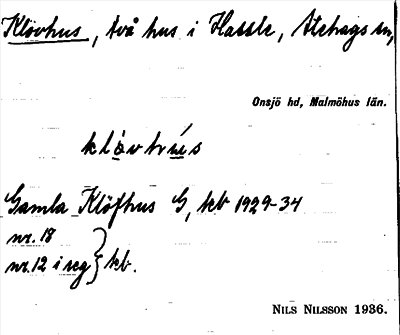 Klövhus, två hus i Hassle, Stehags sn,
Onsjö hd, Malmöhus län.
klövhus
Gamla Klöfhus G, kb 1929-34
nr. 18
nr. 12 i reg } kb.
NILS NILSSON 1936.